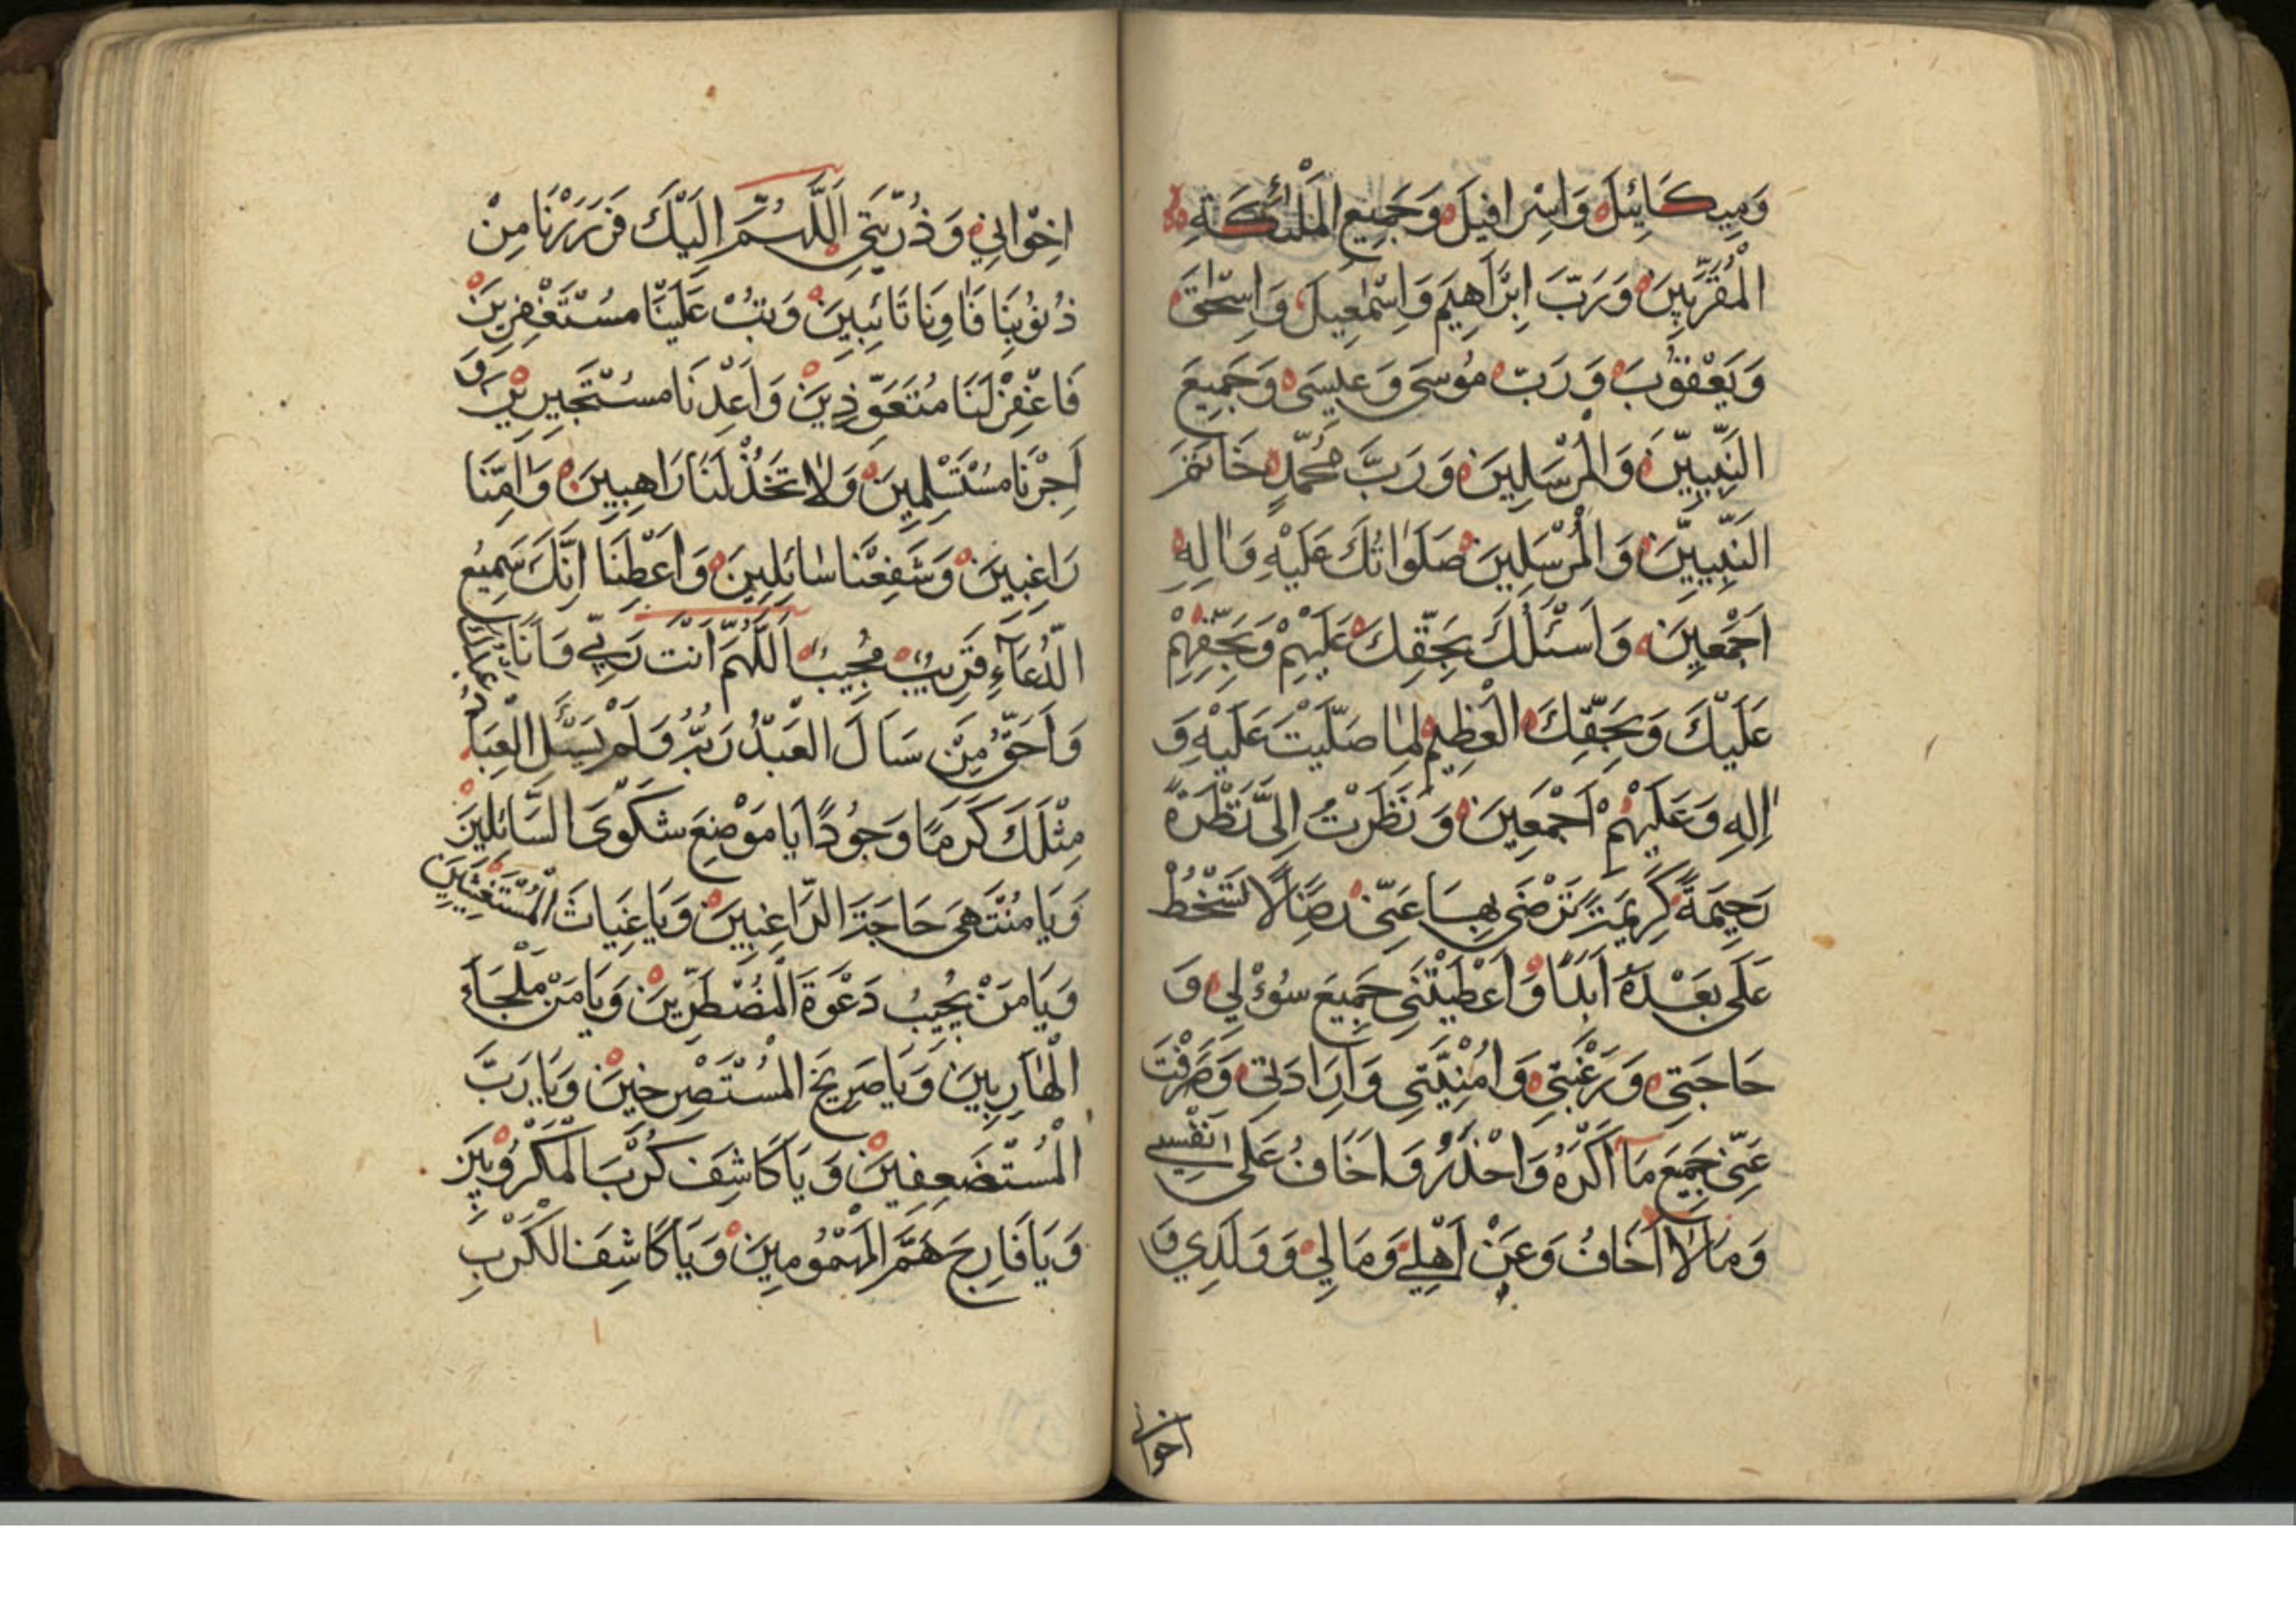 وَمِيكَائِيلَ وَاِسْرَافِيلَ وَجَمِيعِ الْمَلٰئِكَةِ
الْمُقَرَّبِينَ وَرَبَّ اِبْرَاهِيمَ وَاِسْمٰعِيلَ وَاِسْحٰقَ
وَيَعْقُوبَ وَرَبَّ مُوسَى وَعِيسَى وَجَمِيعَ
النَّبِيِّينَ وَالْمُرْسَلِينَ وَرَبَّ مُحَمَّدٍ خَاتَمَ
النَّبِيِّينَ وَالْمُرْسَلِينَ صَلَوَاتُكَ عَلَيْهِ وَاٰلِهِ
اَجْمَعِينَ وَاَسْئَلُكَ بِحَقِّكَ عَلَيْهِمْ وَبِحَقِّهِمْ
عَلَيْكَ وَبِحَقِّكَ الْعَظِيمِ لَمَّا صَلَّيْتَ عَلَيْهِ وَ
اٰلِهِ وَعَلَيْهِمْ اَجْمَعِينَ وَنَظَرْتَ اِلَيَّ نَظْرَةً
رَحِيمَةً كَرِيمَةً تَرْضَى بِهَا عَنِّي رِضًا لَا تَسْخَطُ
عَلَيَّ بَعْدَهُ اَبَدًا وَاَعْطَيْتَنِي جَمِيعَ سُؤْلِي وَ
حَاجَتِي وَرَغْبَتِي وَاُمْنِيَّتِي وَاِرَادَتِي وَصَرَفْتَ
عَنِّي جَمِيعَ مَا اَكْرَهُ وَاَحْذَرُ وَاَخَافُ عَلَى نَفْسِي
وَمَا لَا اَخَافُ وَعَنْ اَهْلِي وَمَالِي وَوَلَدِي وَ
اخوانی
اِخْوَانِي وَذُرِّيَّتِي اَللّٰهُمَّ اِلَيْكَ فَرَرْنَا مِنْ
ذُنُوبِنَا فَاٰوِنَا تَائِبِينَ وَتُبْ عَلَيْنَا مُسْتَغْفِرِينَ
فَاغْفِرْ لَنَا مُتَعَوِّذِينَ وَاَعِذْنَا مُسْتَجِيرِينَ وَ
اَجِرْنَا مُسْتَسْلِمِينَ وَلَا تَخْذُلْنَا رَاهِبِينَ وَاٰمِنَّا
رَاغِبِينَ وَشَفِّعْنَا سَائِلِينَ وَاَعْطِنَا اِنَّكَ سَمِيعُ
الدُّعَاءِ قَرِيبٌ مُجِيبٌ اَللّٰهُمَّ اَنْتَ رَبِّي وَاَنَا عَبْدُكَ
وَاَحَقُّ مَنْ سَاَلَ الْعَبْدُ رَبُّهُ وَلَمْ يَسْئَلِ الْعِبَادُ
مِثْلَكَ كَرَمًا وَجُودًا يَا مَوْضِعَ شَكْوَى السَّائِلِينَ
وَيَا مُنْتَهَى حَاجَةِ الرَّاغِبِينَ وَيَا غِيَاثَ الْمُسْتَغِيثِينَ
وَيَا مَنْ يُجِيبُ دَعْوَةَ الْمُضْطَرِّينَ وَيَا مَنْ مَلْجَاءَ
الْهَارِبِينَ وَيَا صَرِيخَ الْمُسْتَصْرِخِينَ وَيَا رَبَّ
الْمُسْتَضْعَفِينَ وَيَا كَاشِفَ كُرْبَ الْمَكْرُوبِينَ
وَيَا فَارِجَ هَمَّ الْمَهْمُومِينَ وَيَا كَاشِفَ الْكَرْبِ